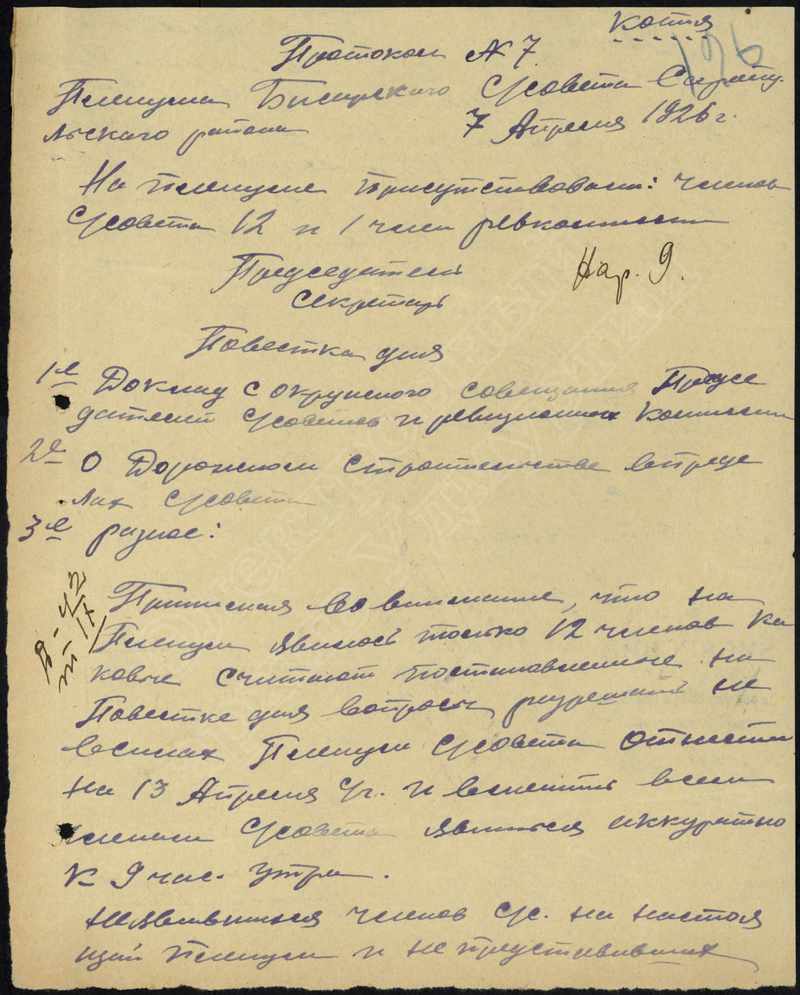 Копия
196
Протокол № 7
Пленума Бисарского с/совета Сарапу-
льского района 7 Апреля 1926 г.
На пленуме присутствовали: членов
с/совета 12 и 1 член ревкомиссии
Председатель
Секретарь
Нар. 9.
Повестка дня
1е Доклад с окружного совещания Предсе
дателей с/советов и ревизионных комиссии
2е О Дорожном строительстве впреде
лах с/совета
3е разное:
Принимая вовнимание, что на
Пленум явилось только 12 членов ка
ковые считают поставленные на
Повестке дня вопросы разрешать не
всилах Пленум с/совета отнести
на 13 Апреля с/г. и вменить всем
членам с/совета явиться аккуратно
к 9 час. утра.
Неявившихся членов с/с. на настоя
щий Пленум и не представивших